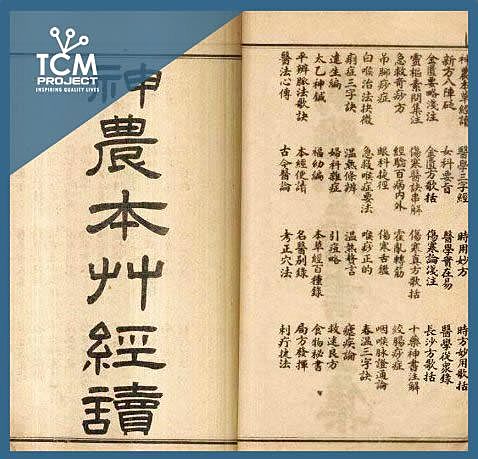 TCM
PROJECT
INSPIRING QUALITY LIVES
神農本艸經讀
神農本草經讀
醫學三字經
時用妙方
時方妙用歌括
新方八陣砭
女科要旨
醫學實在易
醫學從衆錄
金匱要略淺注
金匱方歌括
傷寒論淺注
長沙方歌括
靈樞素問集注
傷寒醫訣串解
傷寒真方歌括
十藥神書注解
急救奇痧方
經驗百病內外
霍亂轉筋
絞腸痧症
吊腳痧症
眼科捷徑
傷寒舌鑑
咽喉脉證通論
白喉治法抉微
急救喉痧要法
喉痧正的
春溫三字訣
痢症三字訣
溫熱條辨
溫熱贅言
瘧疾論
達生編
婦科雜症
引痘略
救迷良方
太乙神鍼
福幼編
本草經百種錄
食物秘書
平辨脉法歌訣
本經便讀
名醫別錄
局方發揮
醫法心傳
古今醫論
考正穴法
刺疔捷法